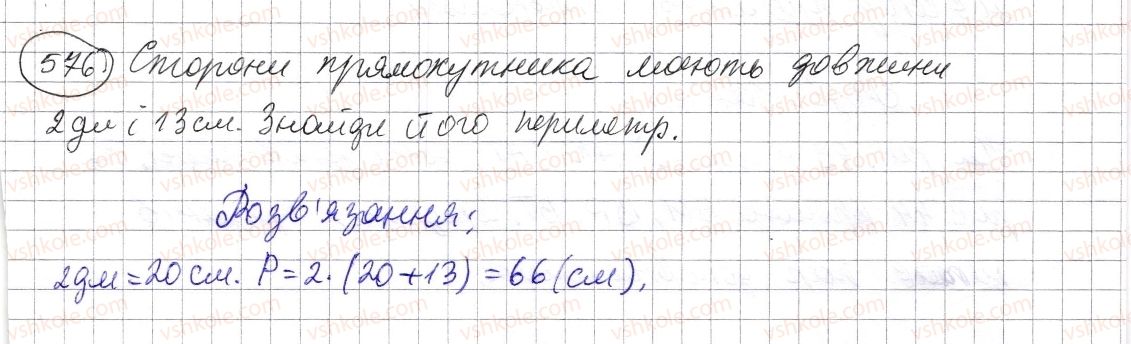 576) Сторони прямокутника мають довжини
2дм і 13см. Знайди його периметр.
Розв'язання:
2дм = 20 см. P = 2 · (20 + 13) = 66 (см).